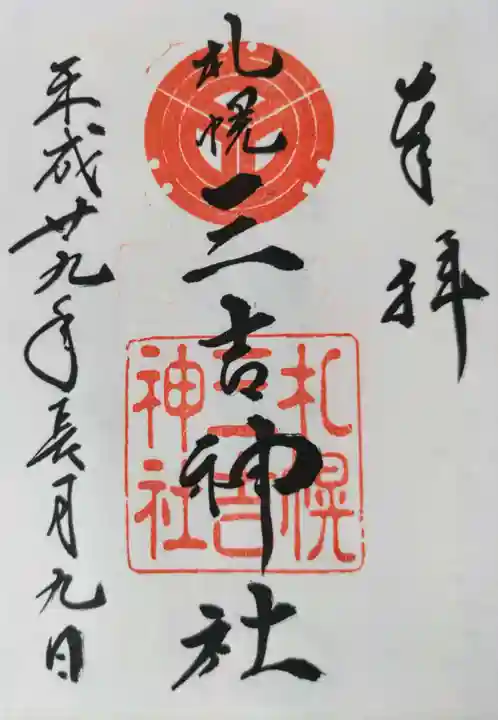 奉拝
札幌三吉神社
平成廿九年長月九日
札幌
三吉
神社